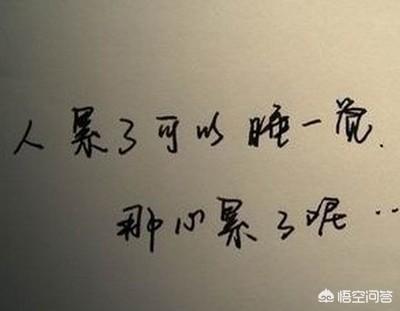 人累了可以睡一觉.
那心累了呢··
悟空问答